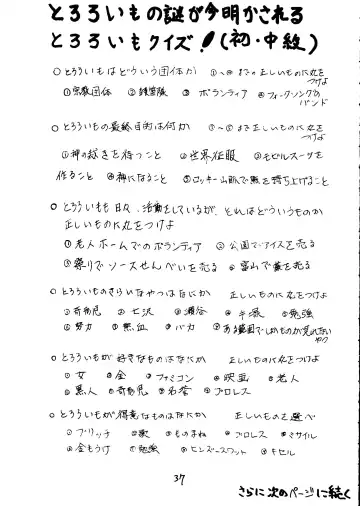 とろろいもの謎が今明かされる
とろろいもクイズ！（初・中級）
○とろろいもはどういう団体か ①〜④までの正しいものに丸を
つけよ
①宗教団体 ②練習版 ③ボランティア ④フォークソングの
バンド
○とろろいもの最終目的は何か ①〜⑤まで正しいものに丸を
つけよ
①神の救きを待つこと ②世界征服 ③モビルスーツを
作ること ④神になること ⑤ロッキー山脈で熊を持ち上げること
○とろろいもも日々、活動をしているが、それはどういうものか
正しいものに丸をつけよ
①老人ホームでのボランティア ②公園でアイスを売る
③祭りでソースせんべいを売る ④富山で薬を売る
○とろろいものきらいなやつはなにか 正しいものに丸をつけよ
①奇形児 ②七沢 ③瀬谷 ④手塚 ⑤勉強
⑥努力 ⑦熱血 ⑧バカ ⑨ある範囲でしかものが見れない
やつ
○とろろいもが好きなものはなにか 正しいものに丸つけよ
①女 ②金 ③ファミコン ④映画 ⑤老人
⑥黒人 ⑦奇形児 ⑧名誉 ⑨プロレス
○とろろいもが得意なものはなにか 正しいものを選べ
①ブリッヂ ②歌 ③ものまね ④プロレス ⑤ミサイル
⑥金もうけ ⑦勉強 ⑧ヒンズースワット ⑨キセル
37
さらに次のページに続く